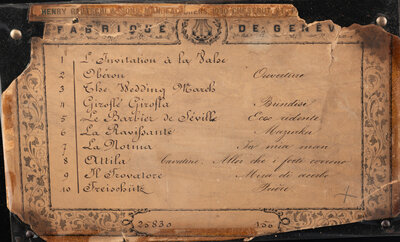 HENRY
FABRIQUE DE GENÈVE
1 L'Invitation à la Valse
2 Obéron Ouverture
3 The Wedding March
4 Giroflé Girofla Brindisi
5 Le Barbier de Séville Ecco ridente
6 La Ravissante Mazurka
7 La Norma In mia man
8 Attila Cavatine. Allor che i forti corrono
9 Il Trovatore Mira di acerbe
10 Freischütz Prière
25830